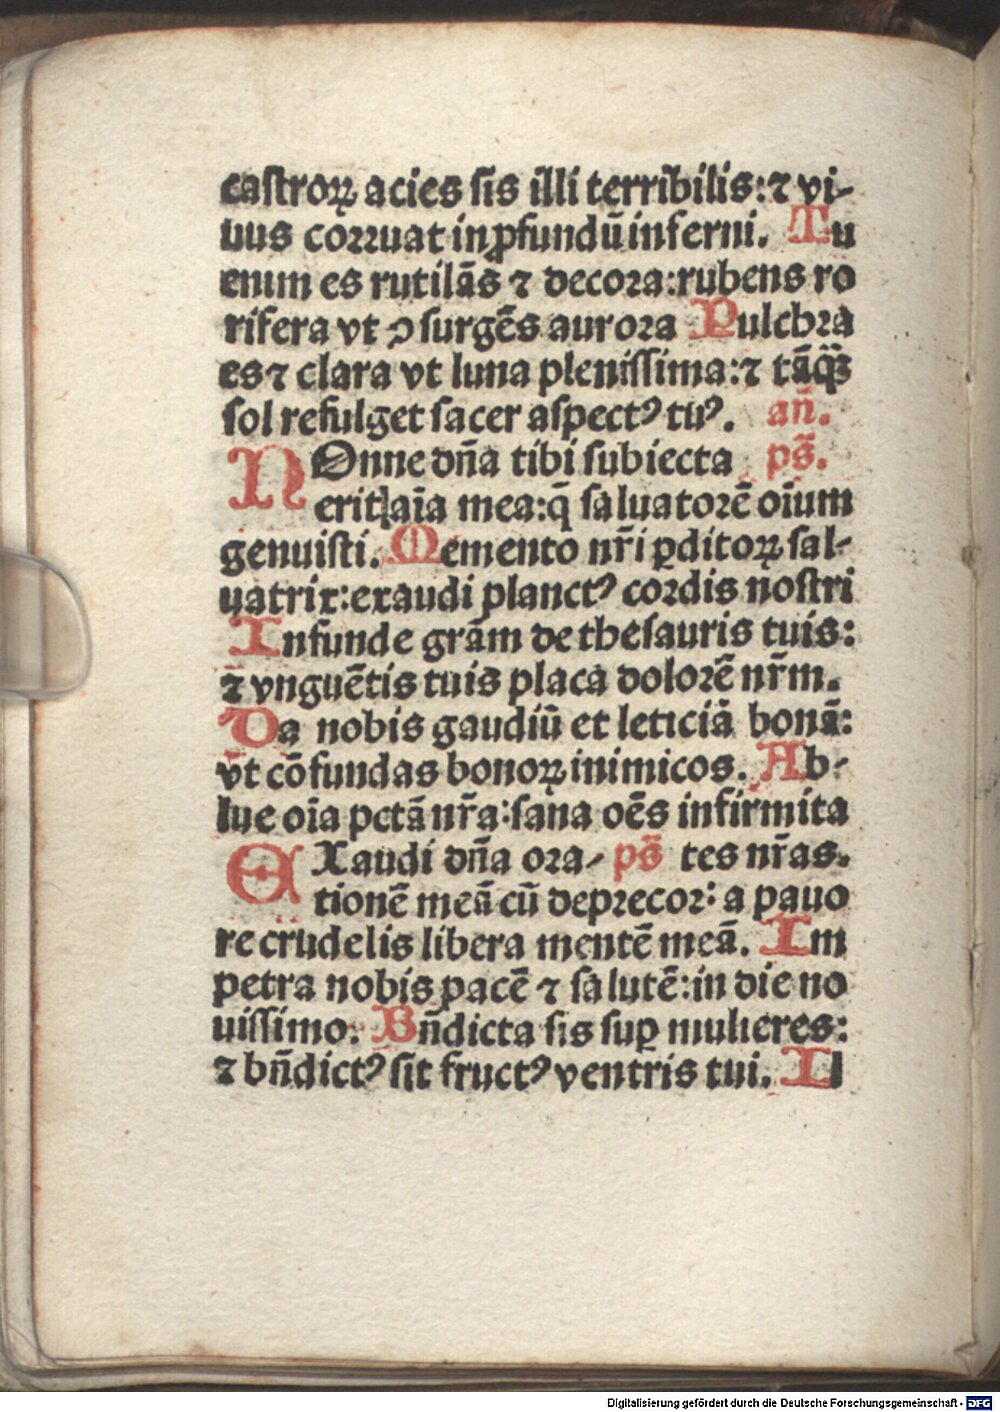 castroꝝ acies ſis illi terribilis:⁊ vi-
uus corruat in ꝓfundū inferni. Tu
enim es rutilās ⁊ decora:rubens ro
rifera vt ↄſurgēs aurora Pulchra
es ⁊ clara vt luna pleniſſima:⁊ tāq̃ꝫ
ſol refulget ſacer aſpectꝰ tuꝰ. an̄.
NOnne dn̄a tibi ſubiecta ps̄.
erit aīa mea:q̄ ſaluatorē oīum
genuiſti. Memento nr̄i ꝑditoꝝ ſal-
uatrix:exaudi planctꝰ cordis noſtri
Infunde grām de theſauris tuis:
⁊ vnguētis tuis placa dolorē nr̄m.
Da nobis gaudiū et leticiā bonā:
vt cōfundas bonoꝝ inimicos. Ab-
lue oīa pctā nr̄a:ſana oēs infirmita
EXaudi dn̄a ora- ps̄ tes nr̄as.
tionē meā cū deprecor: a pauo
re crudelis libera mentē meā. Im
petra nobis pacē ⁊ ſalutē:in die no
uiſſimo. Bn̄dicta ſis ſuꝑ mulieres:
⁊ bn̄dictꝰ ſit fructꝰ ventris tui. Il
Digitalisierung gefördert durch die Deutsche Forschungsgemeinschaft - DFG